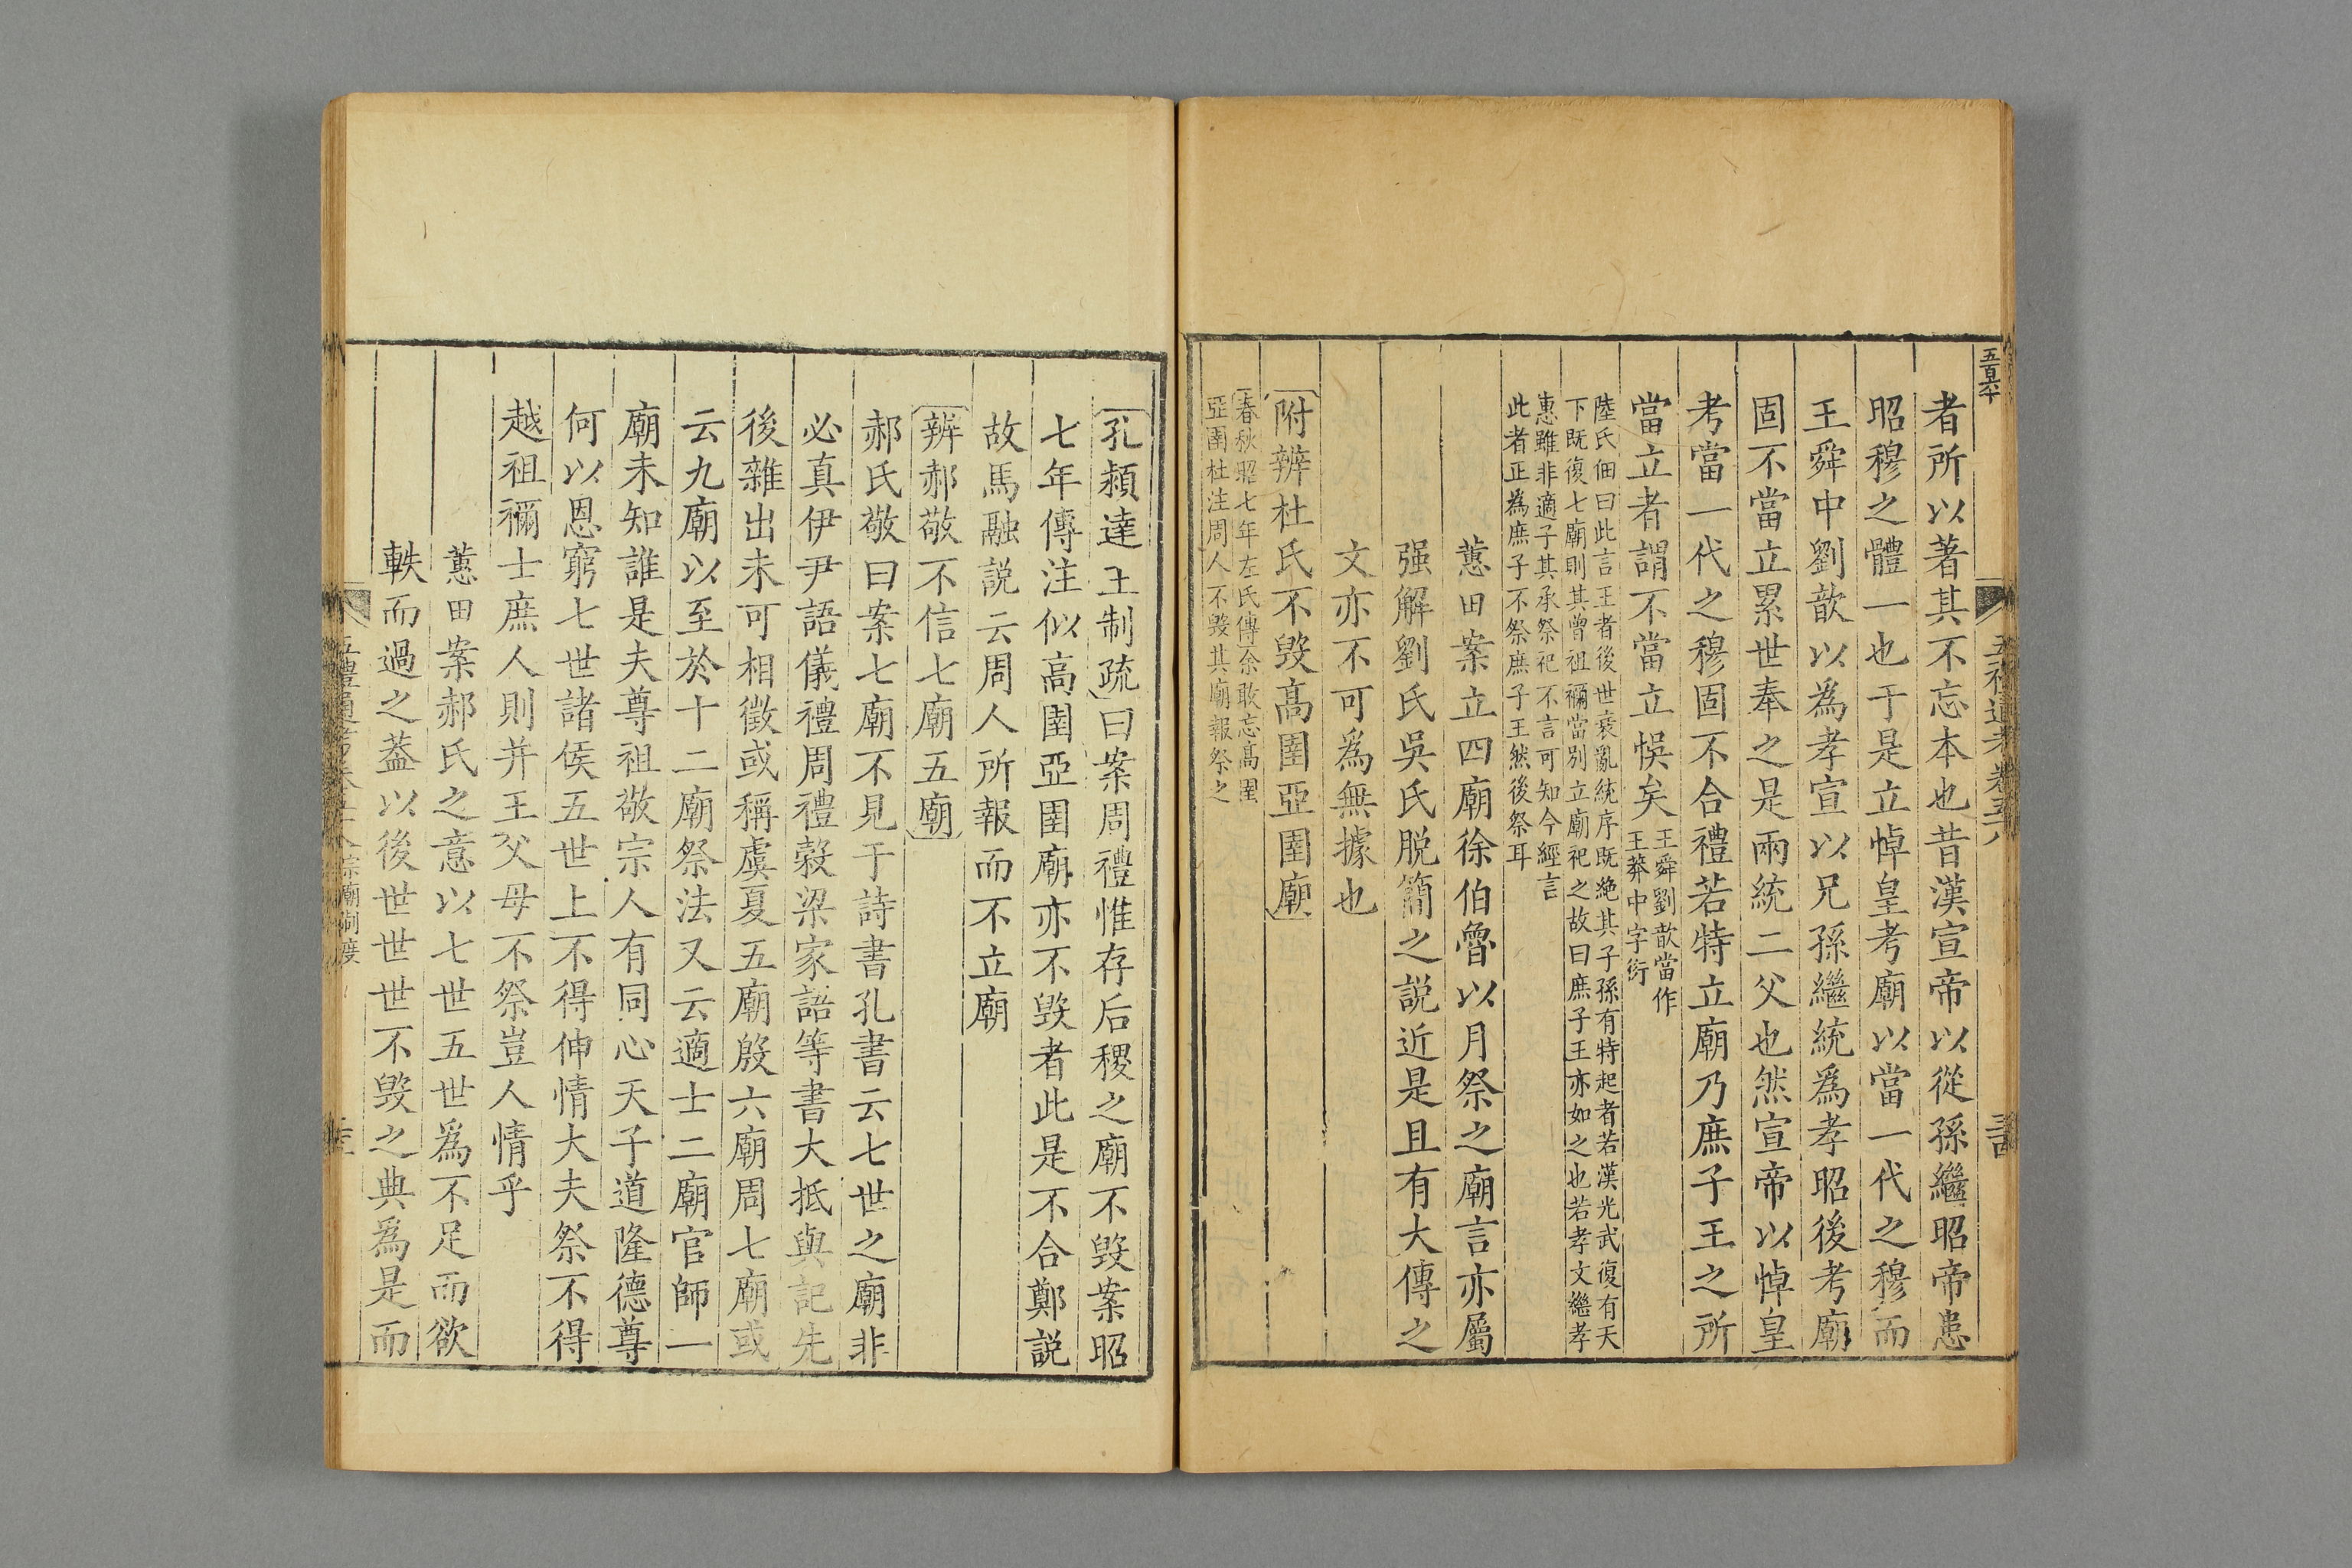 五百六十
五禮通考卷五八
者所以著其不忘本也昔漢宣帝以從孫繼昭帝患
昭穆之體一也于是立悼皇考廟以當一代之穆而
王舜中劉歆以為孝宣以兄孫繼統爲孝昭後考廟
固不當立累世奉之是兩統二父也然宣帝以悼皇
考當一代之穆固不合禮若特立廟乃庶子王之所
當立者謂不當立悞矣王舜劉歆當作
王莽中字衍
陸氏佃曰此言王者後世衰亂統序既絶其子孫有特起者若漢光武復有天
下既復七廟則其曾祖禰當別立廟祀之故曰庶子王亦如之也若孝文繼孝
惠雖非適子其承祭祀不言可知今經言
此者正為庶子不祭庶子王然後祭耳
蕙田案立四廟徐伯魯以月祭之廟言亦屬
强解劉氏吳氏脱簡之説近是且有大傳之
文亦不可爲無據也
附辨杜氏不毀高圉亞圉廟
春秋昭七年左氏傳余敢忘高圉
亞圉杜注周人不毀其廟報祭之
孔穎達王制疏曰案周禮惟存后稷之廟不毀案昭
七年傳注似高圉亞圉廟亦不毀者此是不合鄭説
故馬融説云周人所報而不立廟
辨郝敬不信七廟五廟
郝氏敬曰案七廟不見于詩書孔書云七世之廟非
必真伊尹語儀禮周禮穀梁家語等書大抵與記先
後雜出未可相徵或稱虞夏五廟殷六廟周七廟或
云九廟以至於十二廟祭法又云適士二廟官師一
廟未知誰是夫尊祖敬宗人有同心天子道隆德尊
何以恩窮七世諸侯五世上不得伸情大夫祭不得
越祖禰士庶人則并王父母不祭豈人情乎
蕙田案郝氏之意以七世五世爲不足而欲
軼而過之葢以後世世世不毀之典爲是而